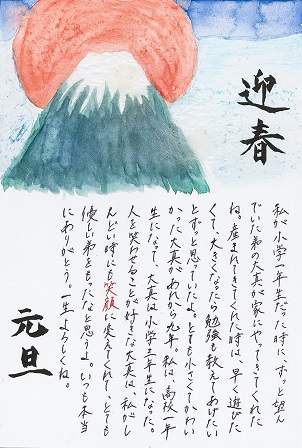 迎春
私が小学一年生だった時に、ずっと望ん
でいた弟の大真が家にやってきてくれた
ね。産まれてきてくれた時は、早く遊びた
くて、大きくなったら勉強も教えてあげたい
とずっと思っていたよ。とても小さくてかわい
かった大真があれから九年。私は、高校一年
生になって、大真は小学三年生になった。
人を笑わせることが好きな大真は、私がし
んどい時にも笑顔に変えてくれて、とても
優しい弟をもったなと思うよ。いつも本当
にありがとう。一生よろしくね。
元旦